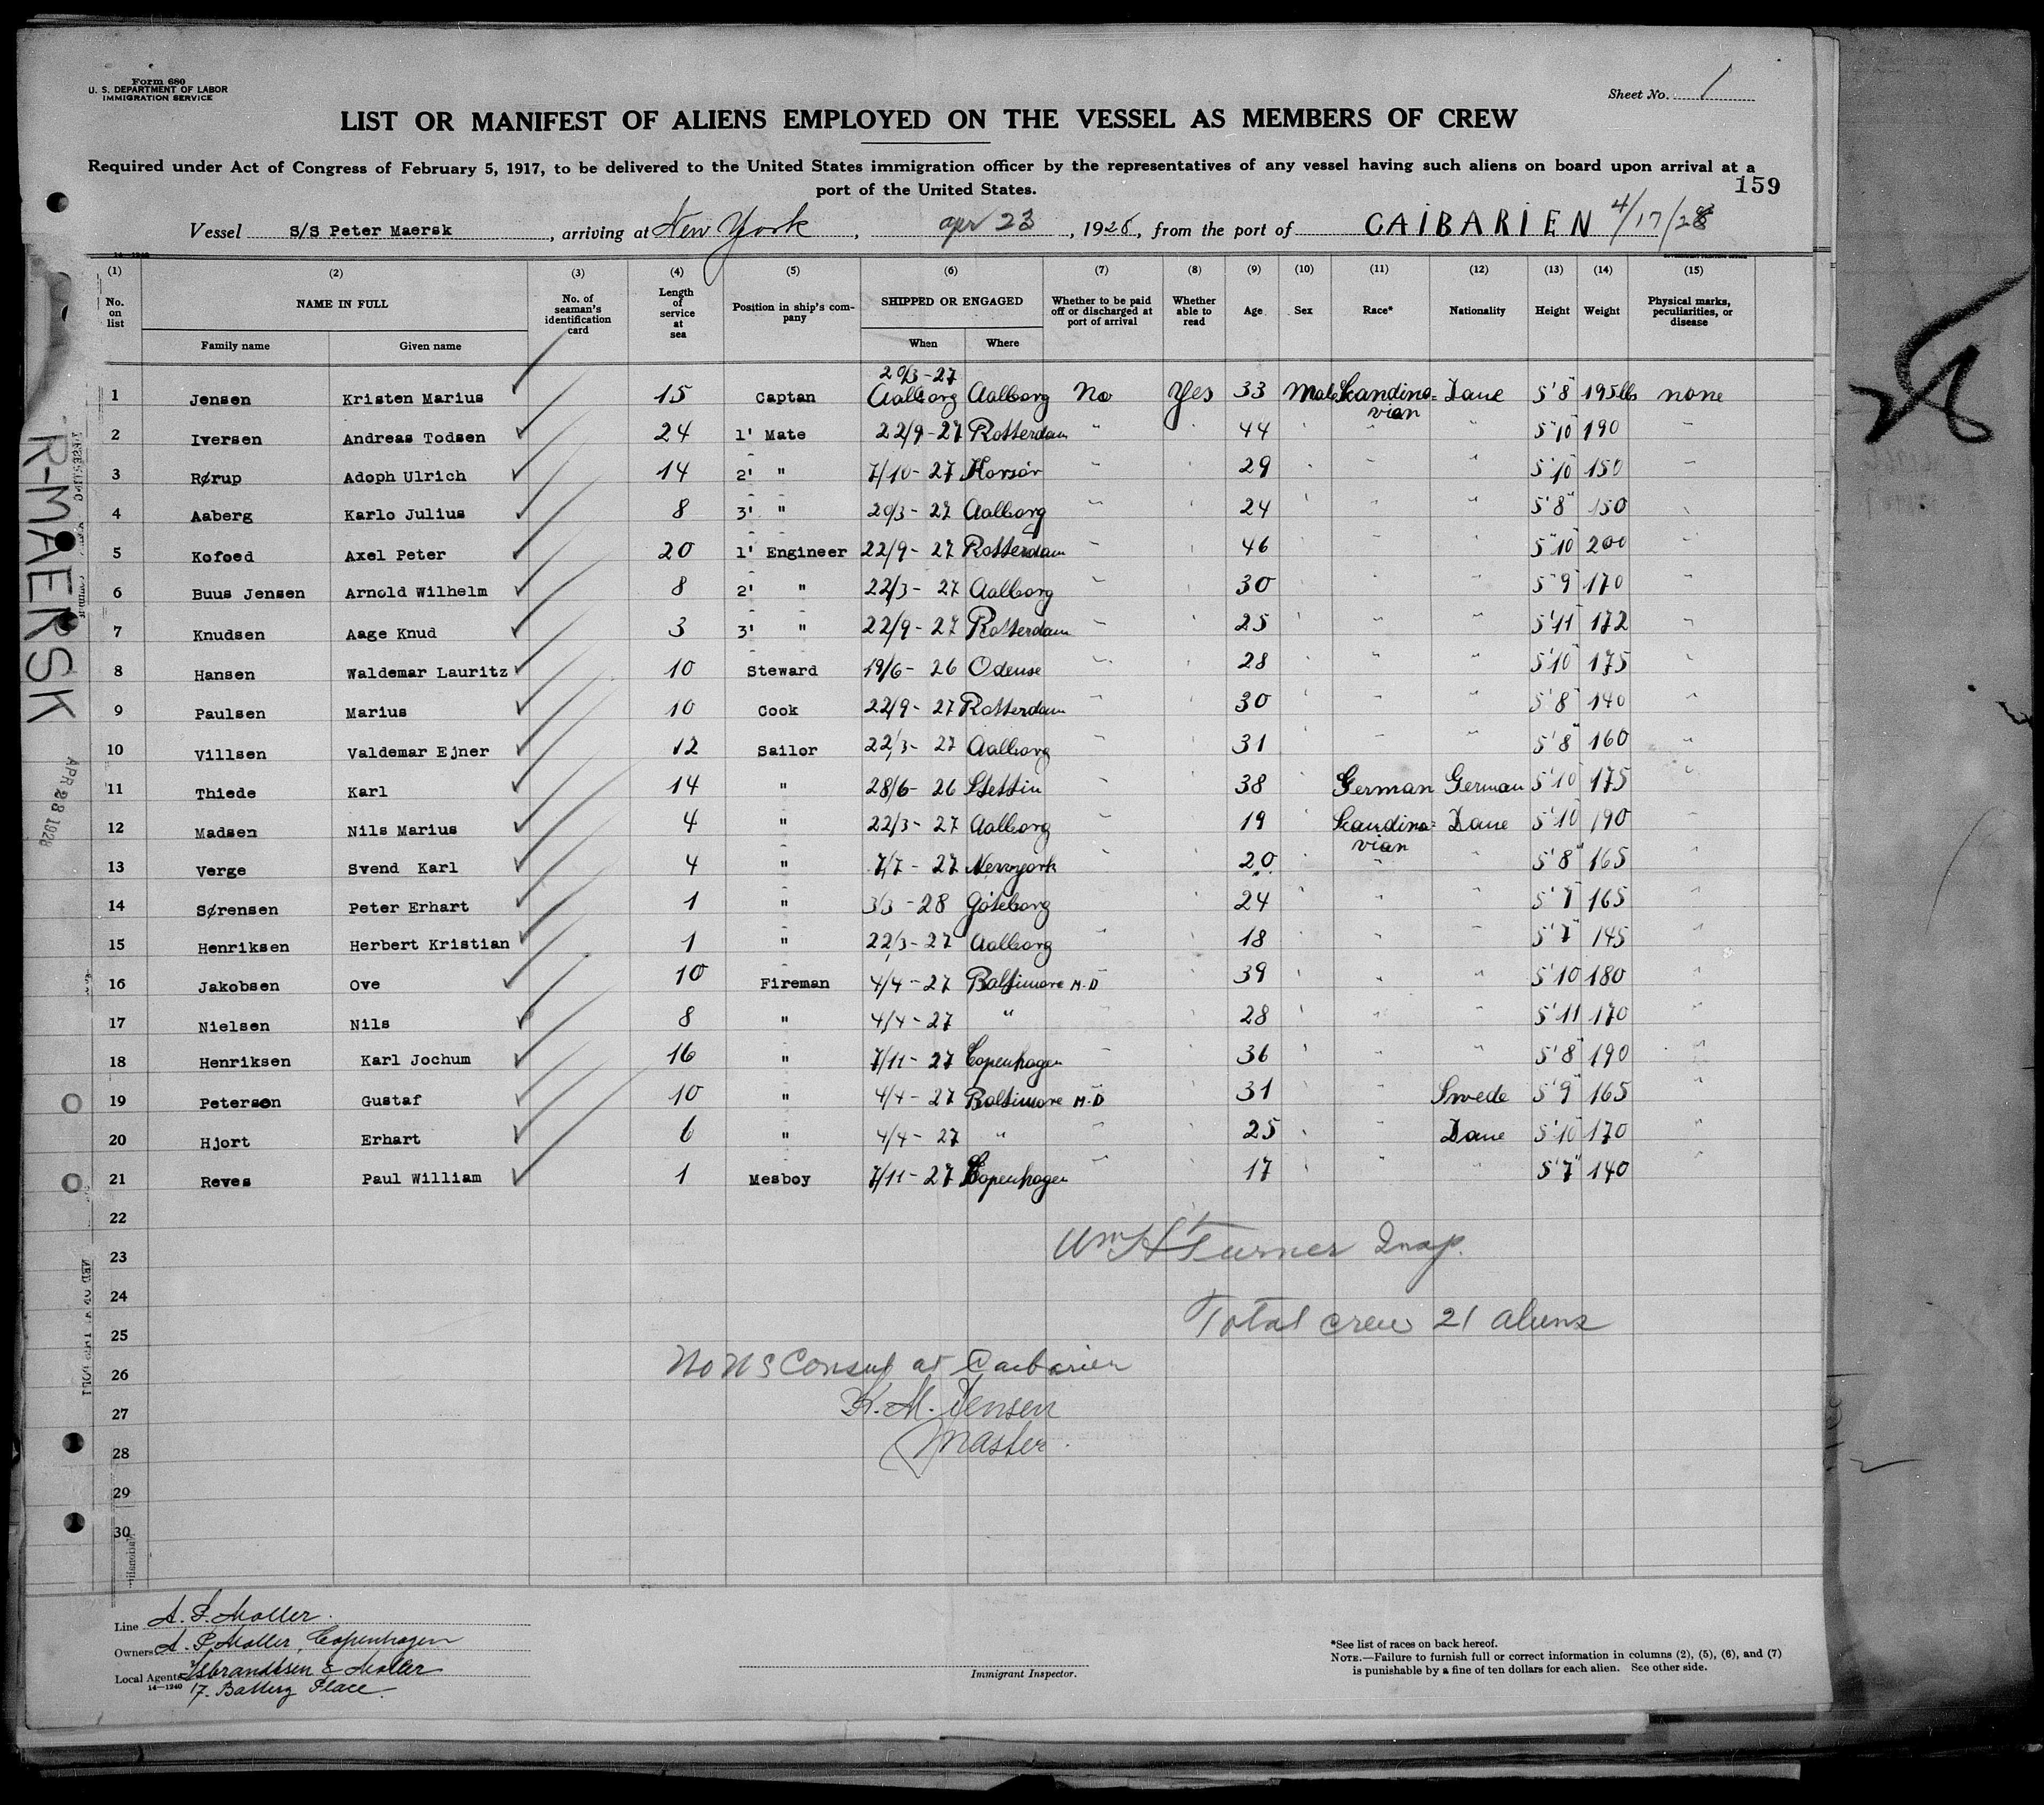 Form 680
U. S. DEPARTMENT OF LABOR
IMMIGRATION SERVICE
Sheet No. 1
LIST OR MANIFEST OF ALIENS EMPLOYED ON THE VESSEL AS MEMBERS OF CREW
Required under Act of Congress of February 5, 1917, to be delivered to the United States immigration officer by the representatives of any vessel having such aliens on board upon arrival at a
port of the United States.
159
Vessel S/S Peter Maersk, arriving at New York, apr 23, 1928, from the port of CAIBARIEN 4/17/28
(1) (2) (3) (4) (5) (6) (7) (8) (9) (10) (11) (12) (13) (14) (15)
No. on list NAME IN FULL No. of seaman's identification card Length of service at sea Position in ship's company SHIPPED OR ENGAGED Whether to be paid off or discharged at port of arrival Whether able to read Age Sex Race* Nationality Height Weight Physical marks, peculiarities, or disease
Family name Given name When Where
20/3-27
1 Jensen Kristen Marius 15 Captan Aalborg Aalborg No Yes 33 Male Scandina= Dane 5'8" 195lbs none
vian
2 Iversen Andreas Todsen 24 1' Mate 22/9-27 Rotterdam " " 44 " " " 5'10 190 "
3 Rørup Adoph Ulrich 14 2' " 7/10-27 Korsör " " 29 " " " 5'10 150 "
4 Aaberg Karlo Julius 8 3' " 20/3-27 Aalborg " " 24 " " " 5'8" 150 "
5 Kofoed Axel Peter 20 1' Engineer 22/9-27 Rotterdam " " 46 " " " 5'10 200 "
6 Buus Jensen Arnold Wilhelm 8 2' " 22/3-27 Aalborg " " 30 " " " 5'9" 170 "
7 Knudsen Aage Knud 3 3' " 22/9-27 Rotterdam " " 25 " " " 5'11 172 "
8 Hansen Waldemar Lauritz 10 Steward 19/6-26 Odense " " 28 " " " 5'10" 175 "
9 Paulsen Marius 10 Cook 22/9-27 Rotterdam " " 30 " " " 5'8" 140 "
10 Villsen Valdemar Ejner 12 Sailor 22/3-27 Aalborg " " 31 " " " 5'8" 160 "
11 Thiede Karl 14 " 28/6-26 Stettin " " 38 " German German 5'10" 175 "
12 Madsen Nils Marius 4 " 22/3-27 Aalborg " " 19 " Scandina= Dane 5'10" 190 "
vian
13 Verge Svend Karl 4 " 7/7-27 Newyork " " 20 " " " 5'8" 165 "
14 Sørensen Peter Erhart 1 " 3/3-28 Göteborg " " 24 " " " 5'7" 165 "
15 Henriksen Herbert Kristian 1 " 22/3-27 Aalborg " " 18 " " " 5'7" 145 "
16 Jakobsen Ove 10 Fireman 4/4-27 Baltimore M.D " " 39 " " " 5'10 180 "
17 Nielsen Nils 8 " 4/4-27 " " " 28 " " " 5'11 170 "
18 Henriksen Karl Jochum 16 " 7/11-27 Copenhagen " " 36 " " " 5'8" 190 "
19 Peterson Gustaf 10 " 4/4-27 Baltimore M.D " " 31 " " Swede 5'9" 165 "
20 Hjort Erhart 6 " 4/4-27 " " " 25 " " Dane 5'10" 170 "
21 Reves Paul William 1 Mesboy 7/11-27 Copenhagen " " 17 " " " 5'7" 140 "
22
23
24
25
26
27
28
29
30
Wm H Turner Insp.
Total crew 21 aliens
No US Consul at Caibarien
K. M. Jensen
Master.
Line A. P. Moller.
Owners A. P. Moller, Copenhagen
Local Agents Isbrandtsen & Moller
14—1240 17. Battery Place.
Immigrant Inspector.
*See list of races on back hereof.
NOTE.—Failure to furnish full or correct information in columns (2), (5), (6), and (7)
is punishable by a fine of ten dollars for each alien. See other side.
R-MAERSK
APR 28 1928